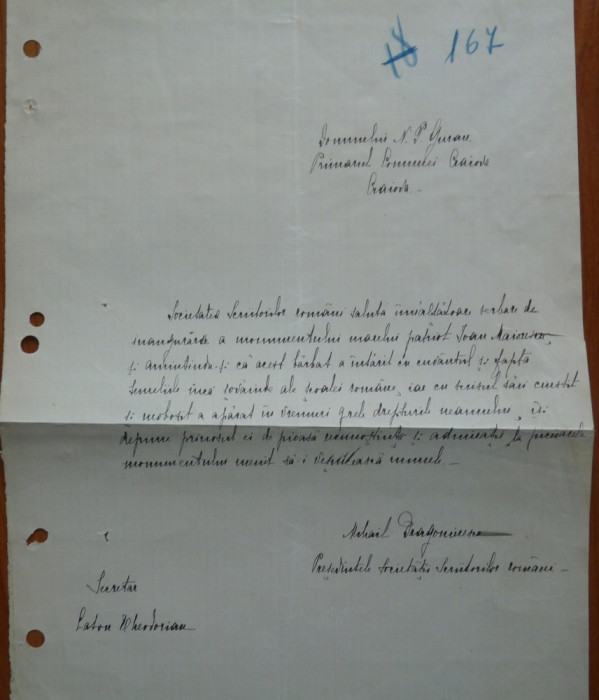 18 167
Domnului N. P. Guran
Primarul Comunei Craiova
Craiova –
Societatea Scriitorilor români salută înălțătoarea serbare de
inaugurare a monumentului marelui patriot Ioan Maiorescu
și amintindu-și că acest bărbat a întărit cu cuvântul și fapta
temeliile încă șovăinde ale școalei române, iar cu scrisul său cinstit
și neobosit a apărat în vremuri grele drepturile neamului, își
depune prinosul ei de pioasă recunoștință și admirație la picioarele
monumentului menit să-i veșnicească numele –
Mihail Dragomirescu
Președintele Societății Scriitorilor români –
Secretar
Caton Theodorian